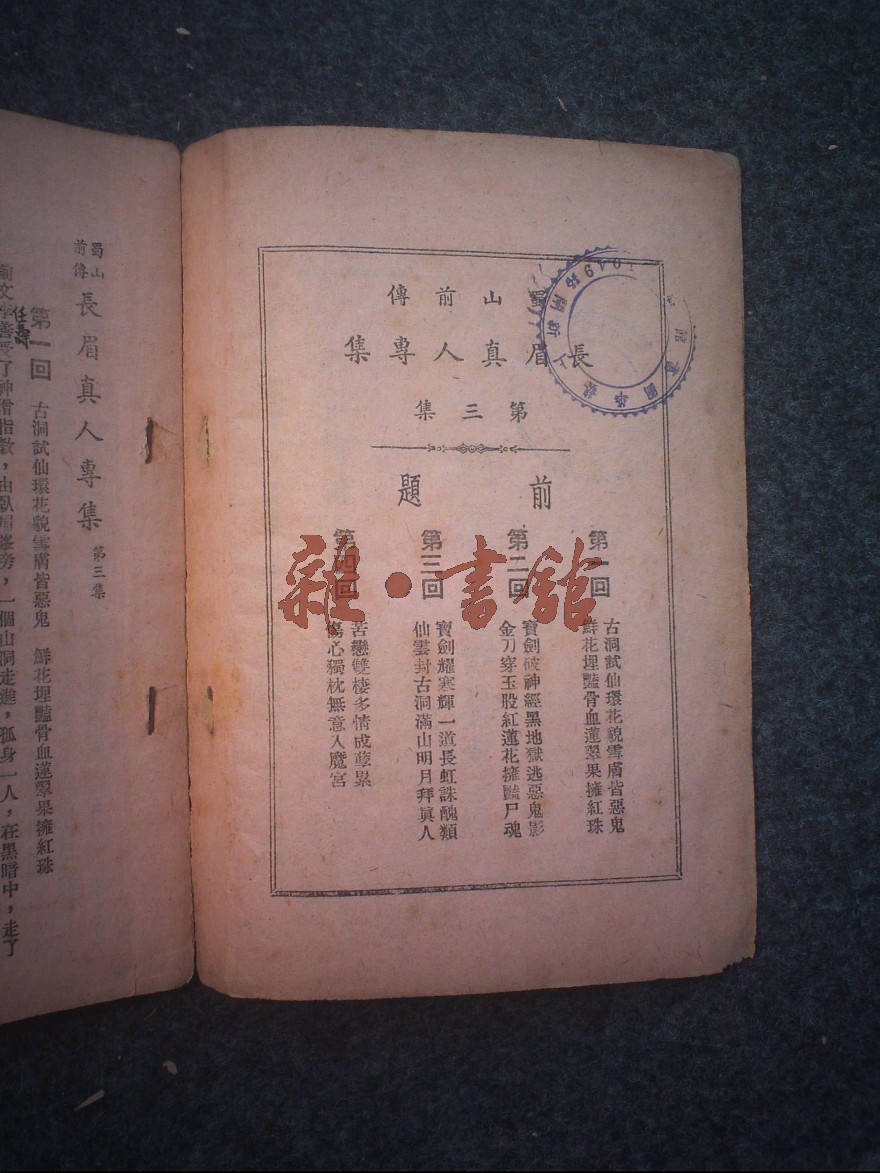 蜀山前傳
長眉真人專集
第三集
前題
第一回
古洞試仙環花貌雪膚皆惡鬼
鮮花埋豔骨血蓮翠果擁紅珠
第二回
寶劍破神經黑地獄逃惡鬼影
金刀穿玉股紅蓮花擁豔尸魂
第三回
寶劍耀寒輝一道長虹誅醜類
仙雲封古洞滿山明月拜眞人
第四回
苦戀雙棲多情成孽累
傷心獨枕無意入魔宮
雜·書館
蜀山前傳
長眉真人專集
第三集
第一回
古洞試仙環花貌雪膚皆惡鬼 鮮花埋豔骨血蓮翠果擁紅珠
了神僧指教，由臥眉峯旁，一個山洞走進，孤身一人，在黑暗中，走了